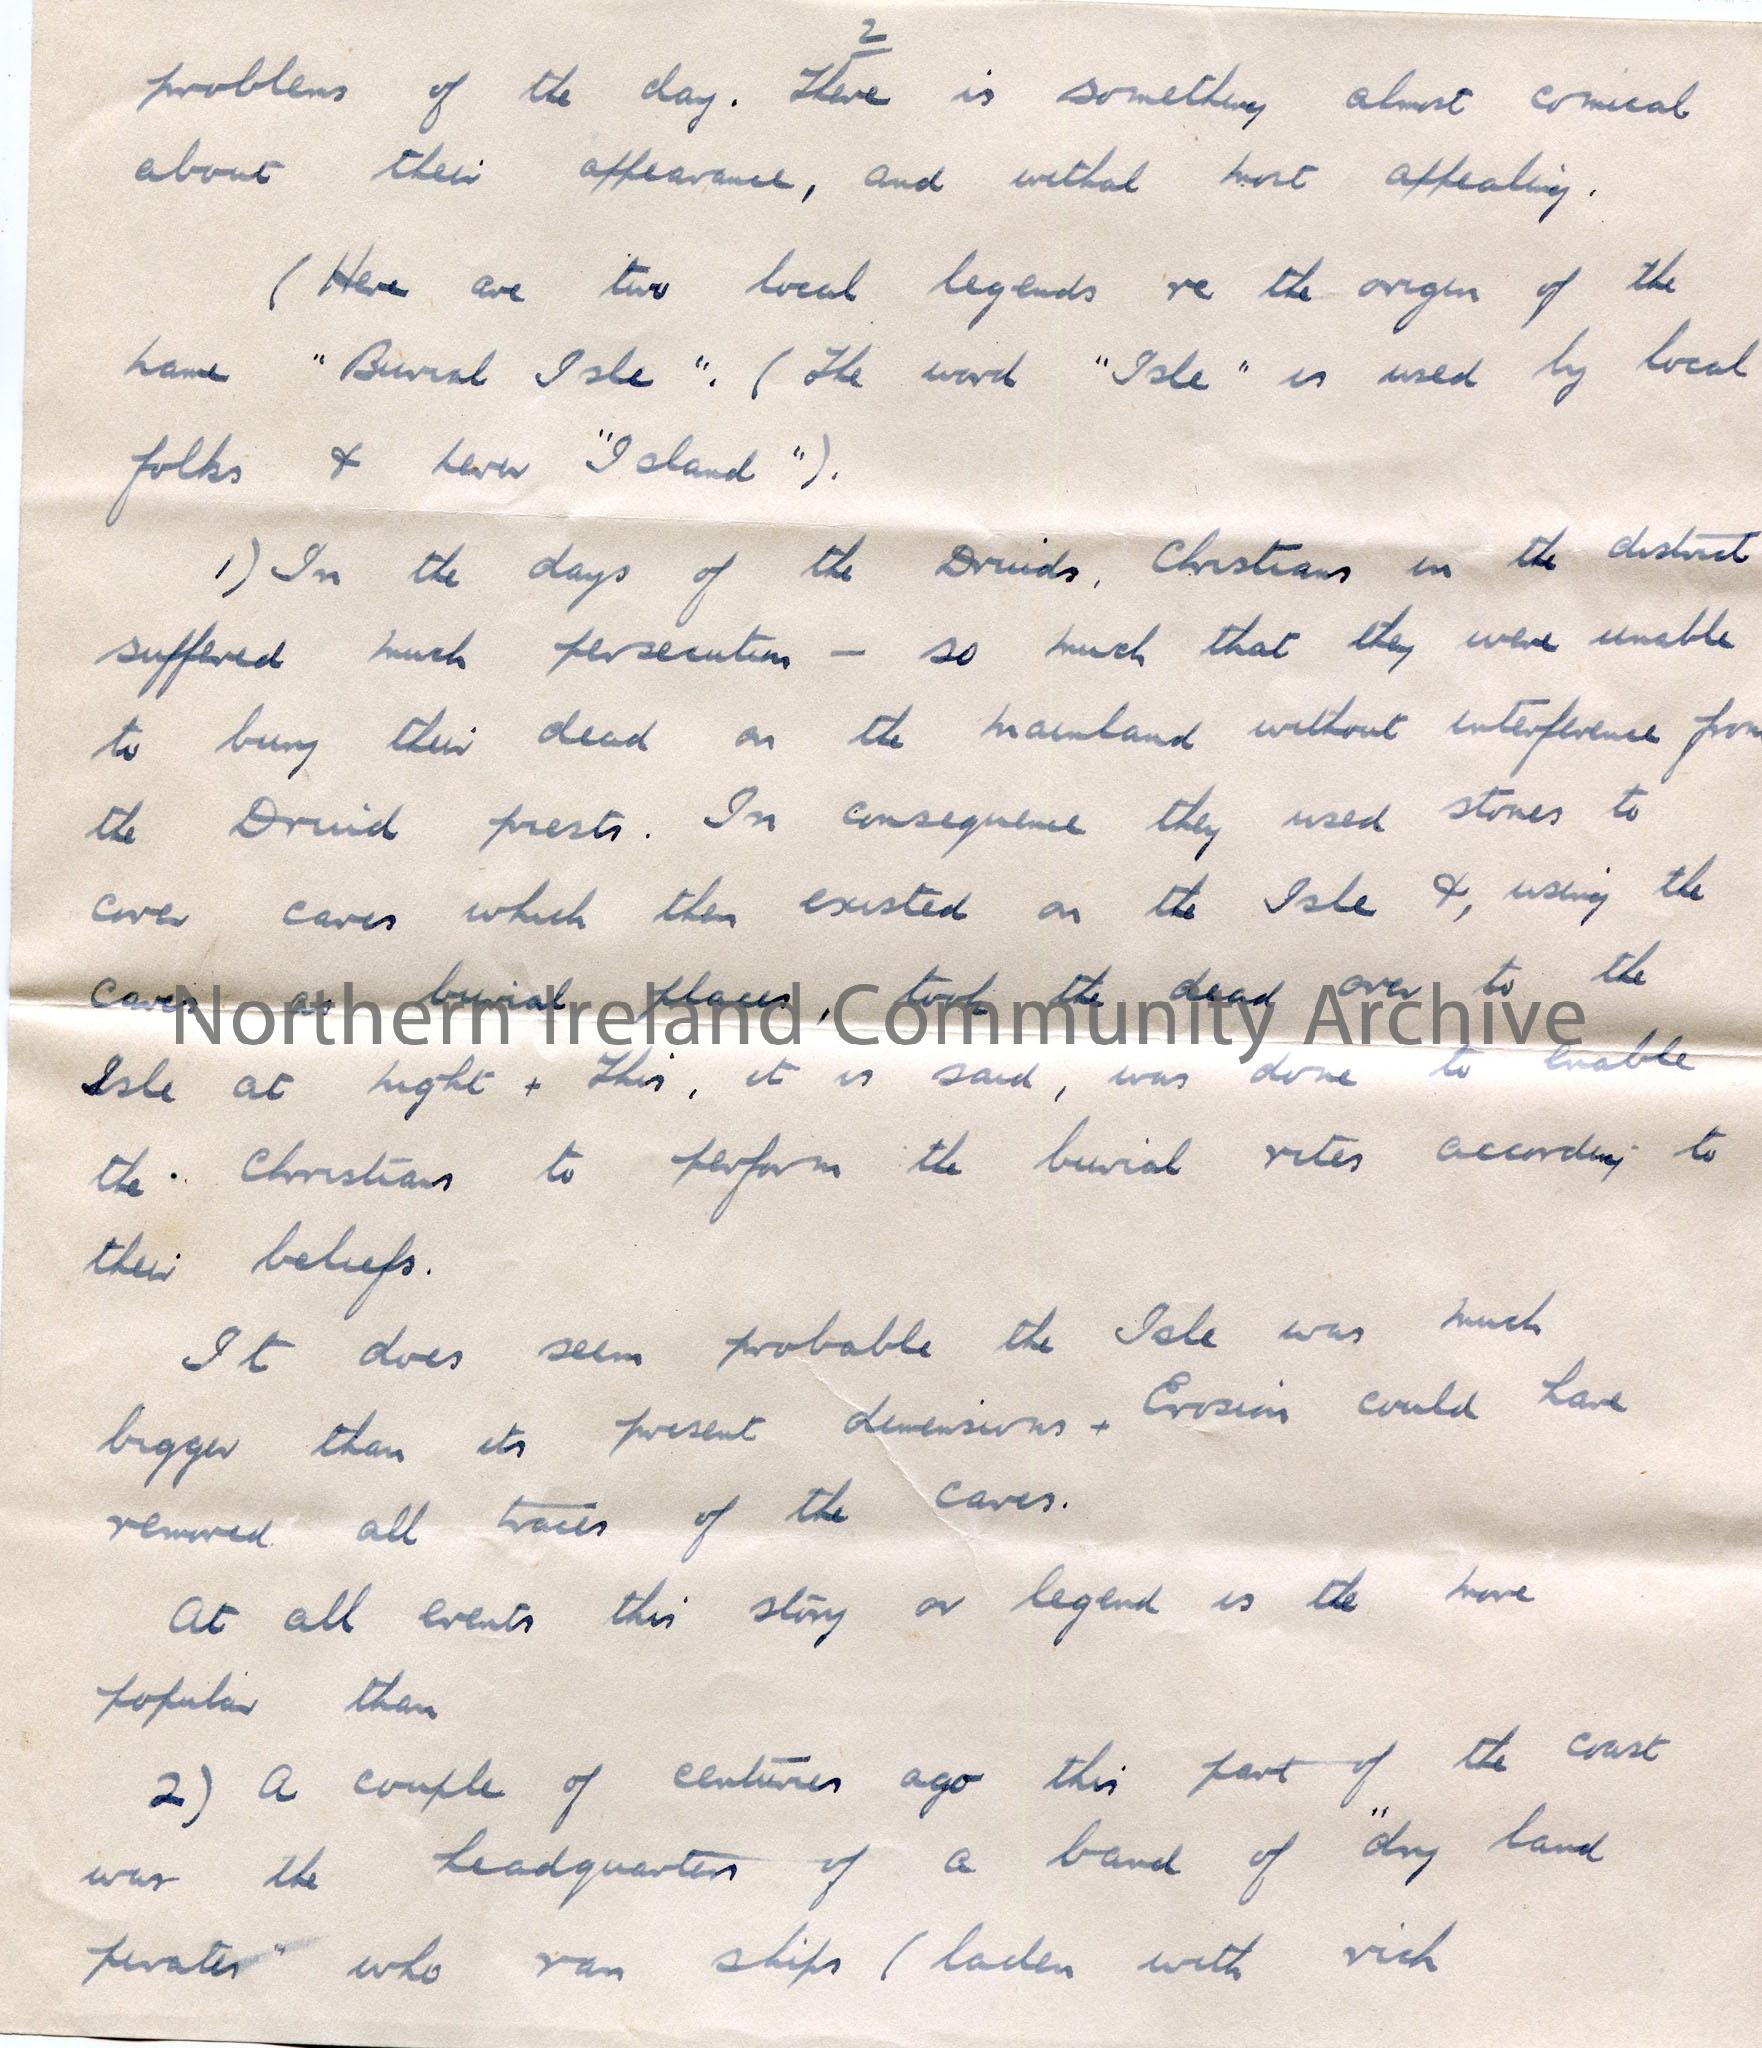 2
problems of the day. There is something almost comical
about their appearance, and withal most appealing.
( Here are two local legends re the origin of the
name "Burial Isle". ( The word "Isle" is used by local
folks & never "Island").
1) In the days of the Druids, Christians in the district
suffered much persecution — so much that they were unable
to bury their dead on the mainland without interference from
the Druid priests. In consequence they used stones to
cover caves which then existed on the Isle &, using the
caves as burial places, took the dead over to the
Northern Ireland Community Archive
Isle at night + This, it is said, was done to enable
the Christians to perform the burial rites according to
their beliefs.
It does seem probable the Isle was much
bigger than its present dimensions + Erosion could have
removed all traces of the caves.
At all events this story or legend is the more
popular than
2) A couple of centuries ago this part of the coast
was the headquarters of a band of "dry land
pirates" who ran ships ( laden with rich